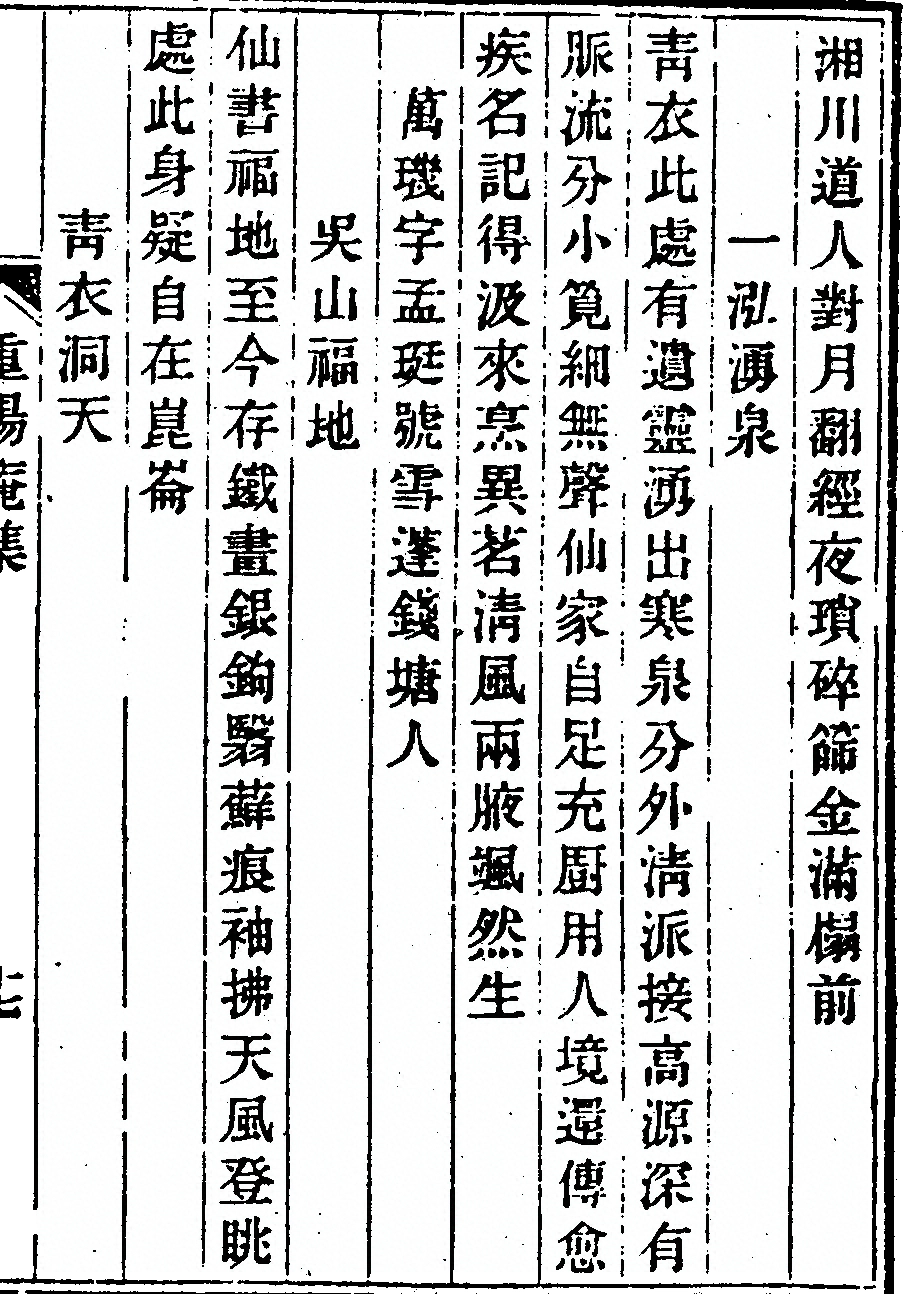 湘川道人對月翻經夜瑣碎篩金滿榻前
一泓湧泉
靑衣此處有遺靈湧出寒泉分外淸派接高源深有
脈流分小筧細無聲仙家自足充厨用人境還傳愈
疾名記得汲來烹異茗淸風兩腋颯然生
萬璣字孟珽號雪蓬錢塘人
吳山福地
仙書福地至今存鐵畫銀鉤翳蘚痕袖拂天風登眺
處此身疑自在崑崙
靑衣洞天
重陽庵集
七